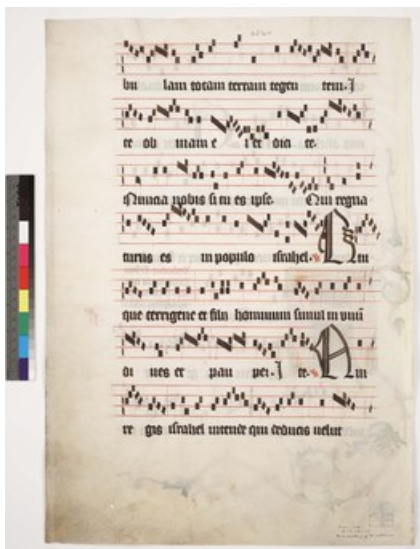 bu lam totam terram tegen tem. I
te ob uiam e i et dici te.
Nuncia nobis si tu es ipse. Qui regna
turus es in populo israhel. ℣ Qui
que terrigene et filii hominum simul in unū
di ues et pau per. I te. ℣ Qui
re gis israhel intende qui deducis uelut